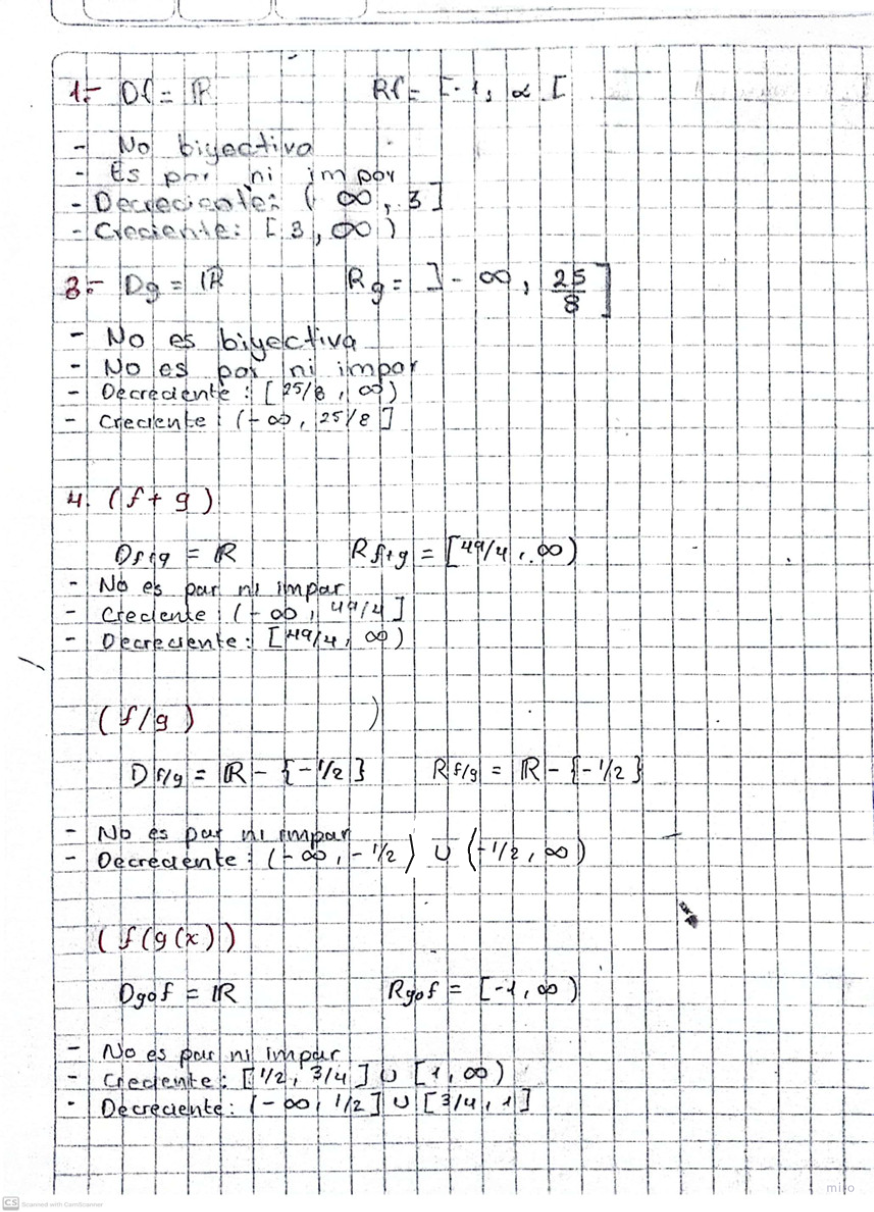 1.- Df = ℝ Rf = [-1, ∝ [
- No biyectiva
- Es par ni impar
- Decreciente: ( ∞, 3]
- Creciente: [3, ∞)
3.- Dg = ℝ Rg = ]-∞, 25/8]
- No es biyectiva
- No es par ni impar
- Decreciente: [25/8, ∞)
- Creciente: (-∞, 25/8]
4. (f+g)
Df+g = ℝ Rf+g = [49/4, ∞)
- No es par ni impar
- Creciente: (-∞, 49/4]
- Decreciente: [49/4, ∞)
(f/g) )
Df/g = ℝ - {-1/2} Rf/g = ℝ - {-1/2}
- No es par ni impar
- Decreciente: (-∞, -1/2) ∪ (-1/2, ∞)
(f(g(x))
Dgof = ℝ Rgof = [-1, ∞)
- No es par ni impar
- Creciente: [1/2, 3/4] ∪ [1, ∞)
- Decreciente: (-∞, 1/2] ∪ [3/4, 1]
CS Scanned with CamScanner